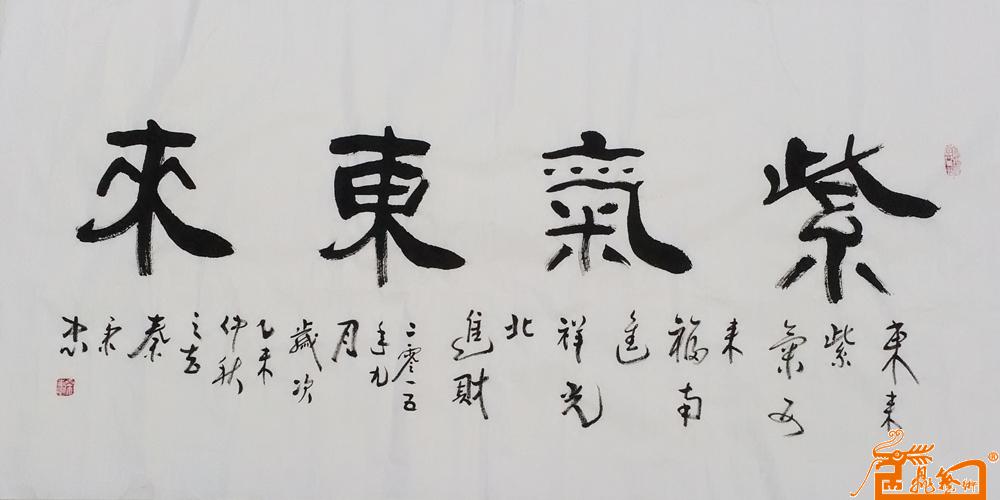 紫氣東來
東来
紫
氣西
来
福南
進
祥光
北
進財
二零一五
年九
月
歲次
乙未
仲秋
之吉
秦
秉
忠